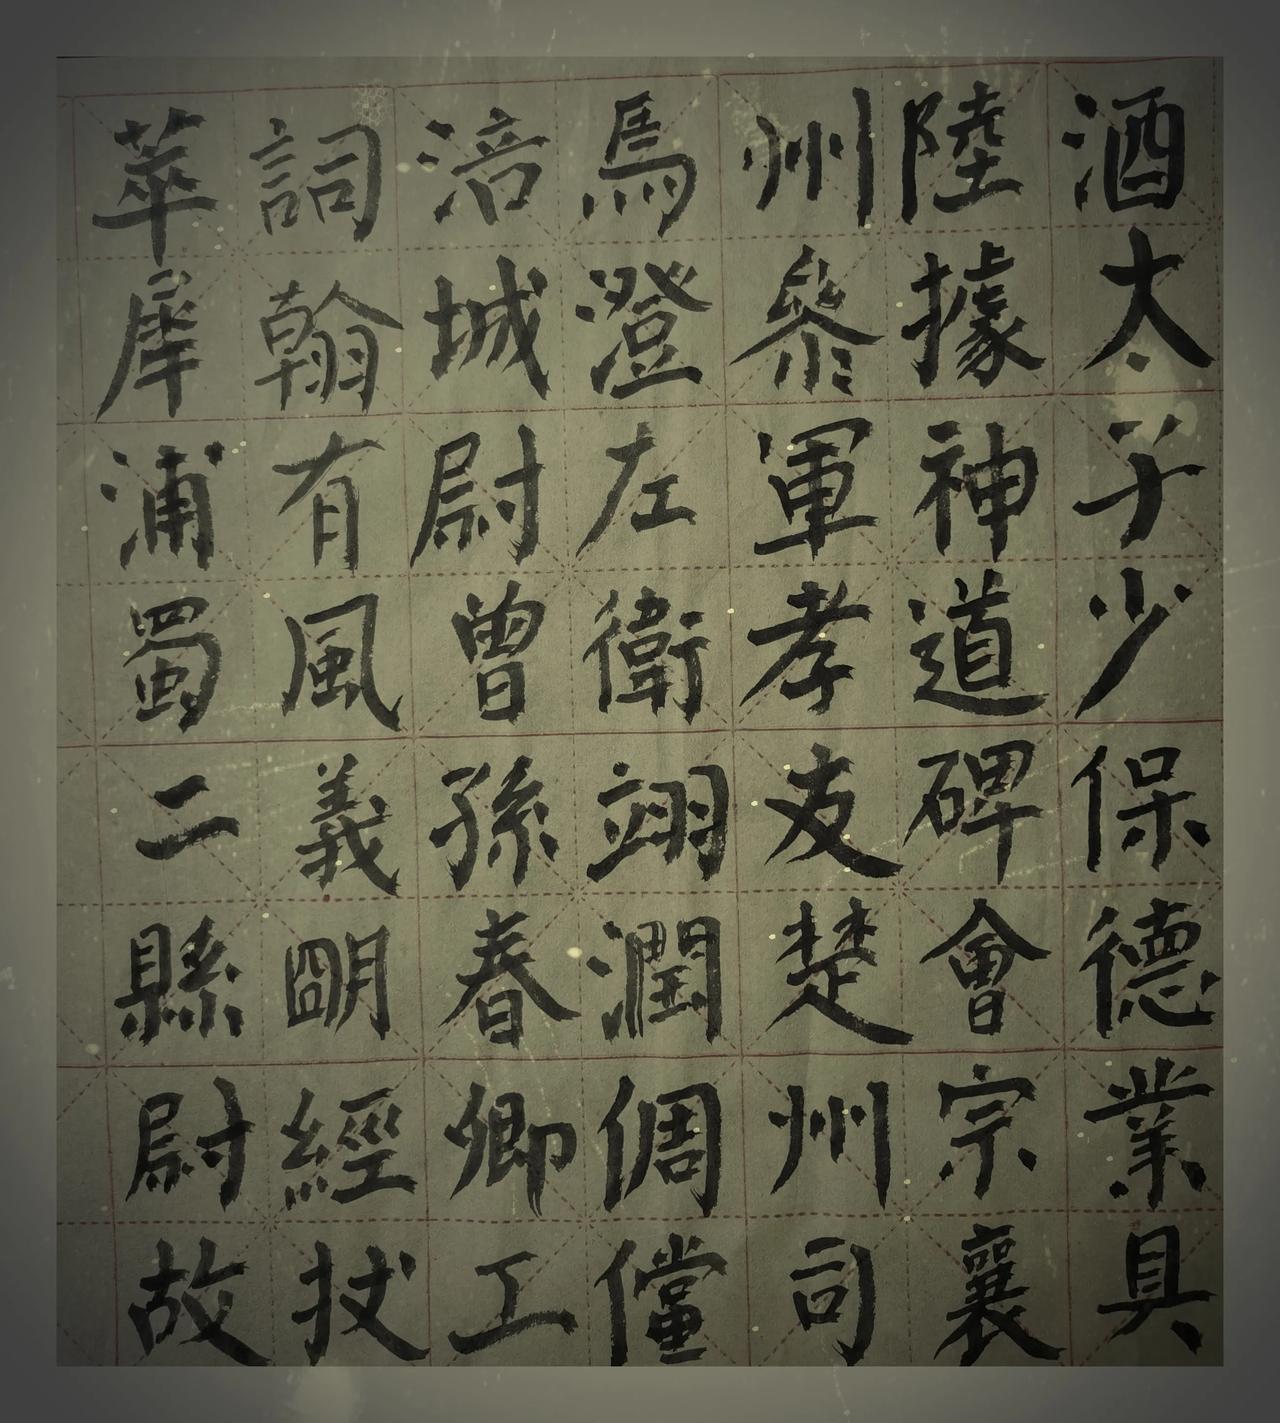 酒太子少保德業具
陸據神道碑會宗襄
州參軍孝友楚州司
馬澄左衛翊潤倜儻
涪城尉曾孫春卿工
詞翰有風義朙經拔
萃犀浦蜀二縣尉故